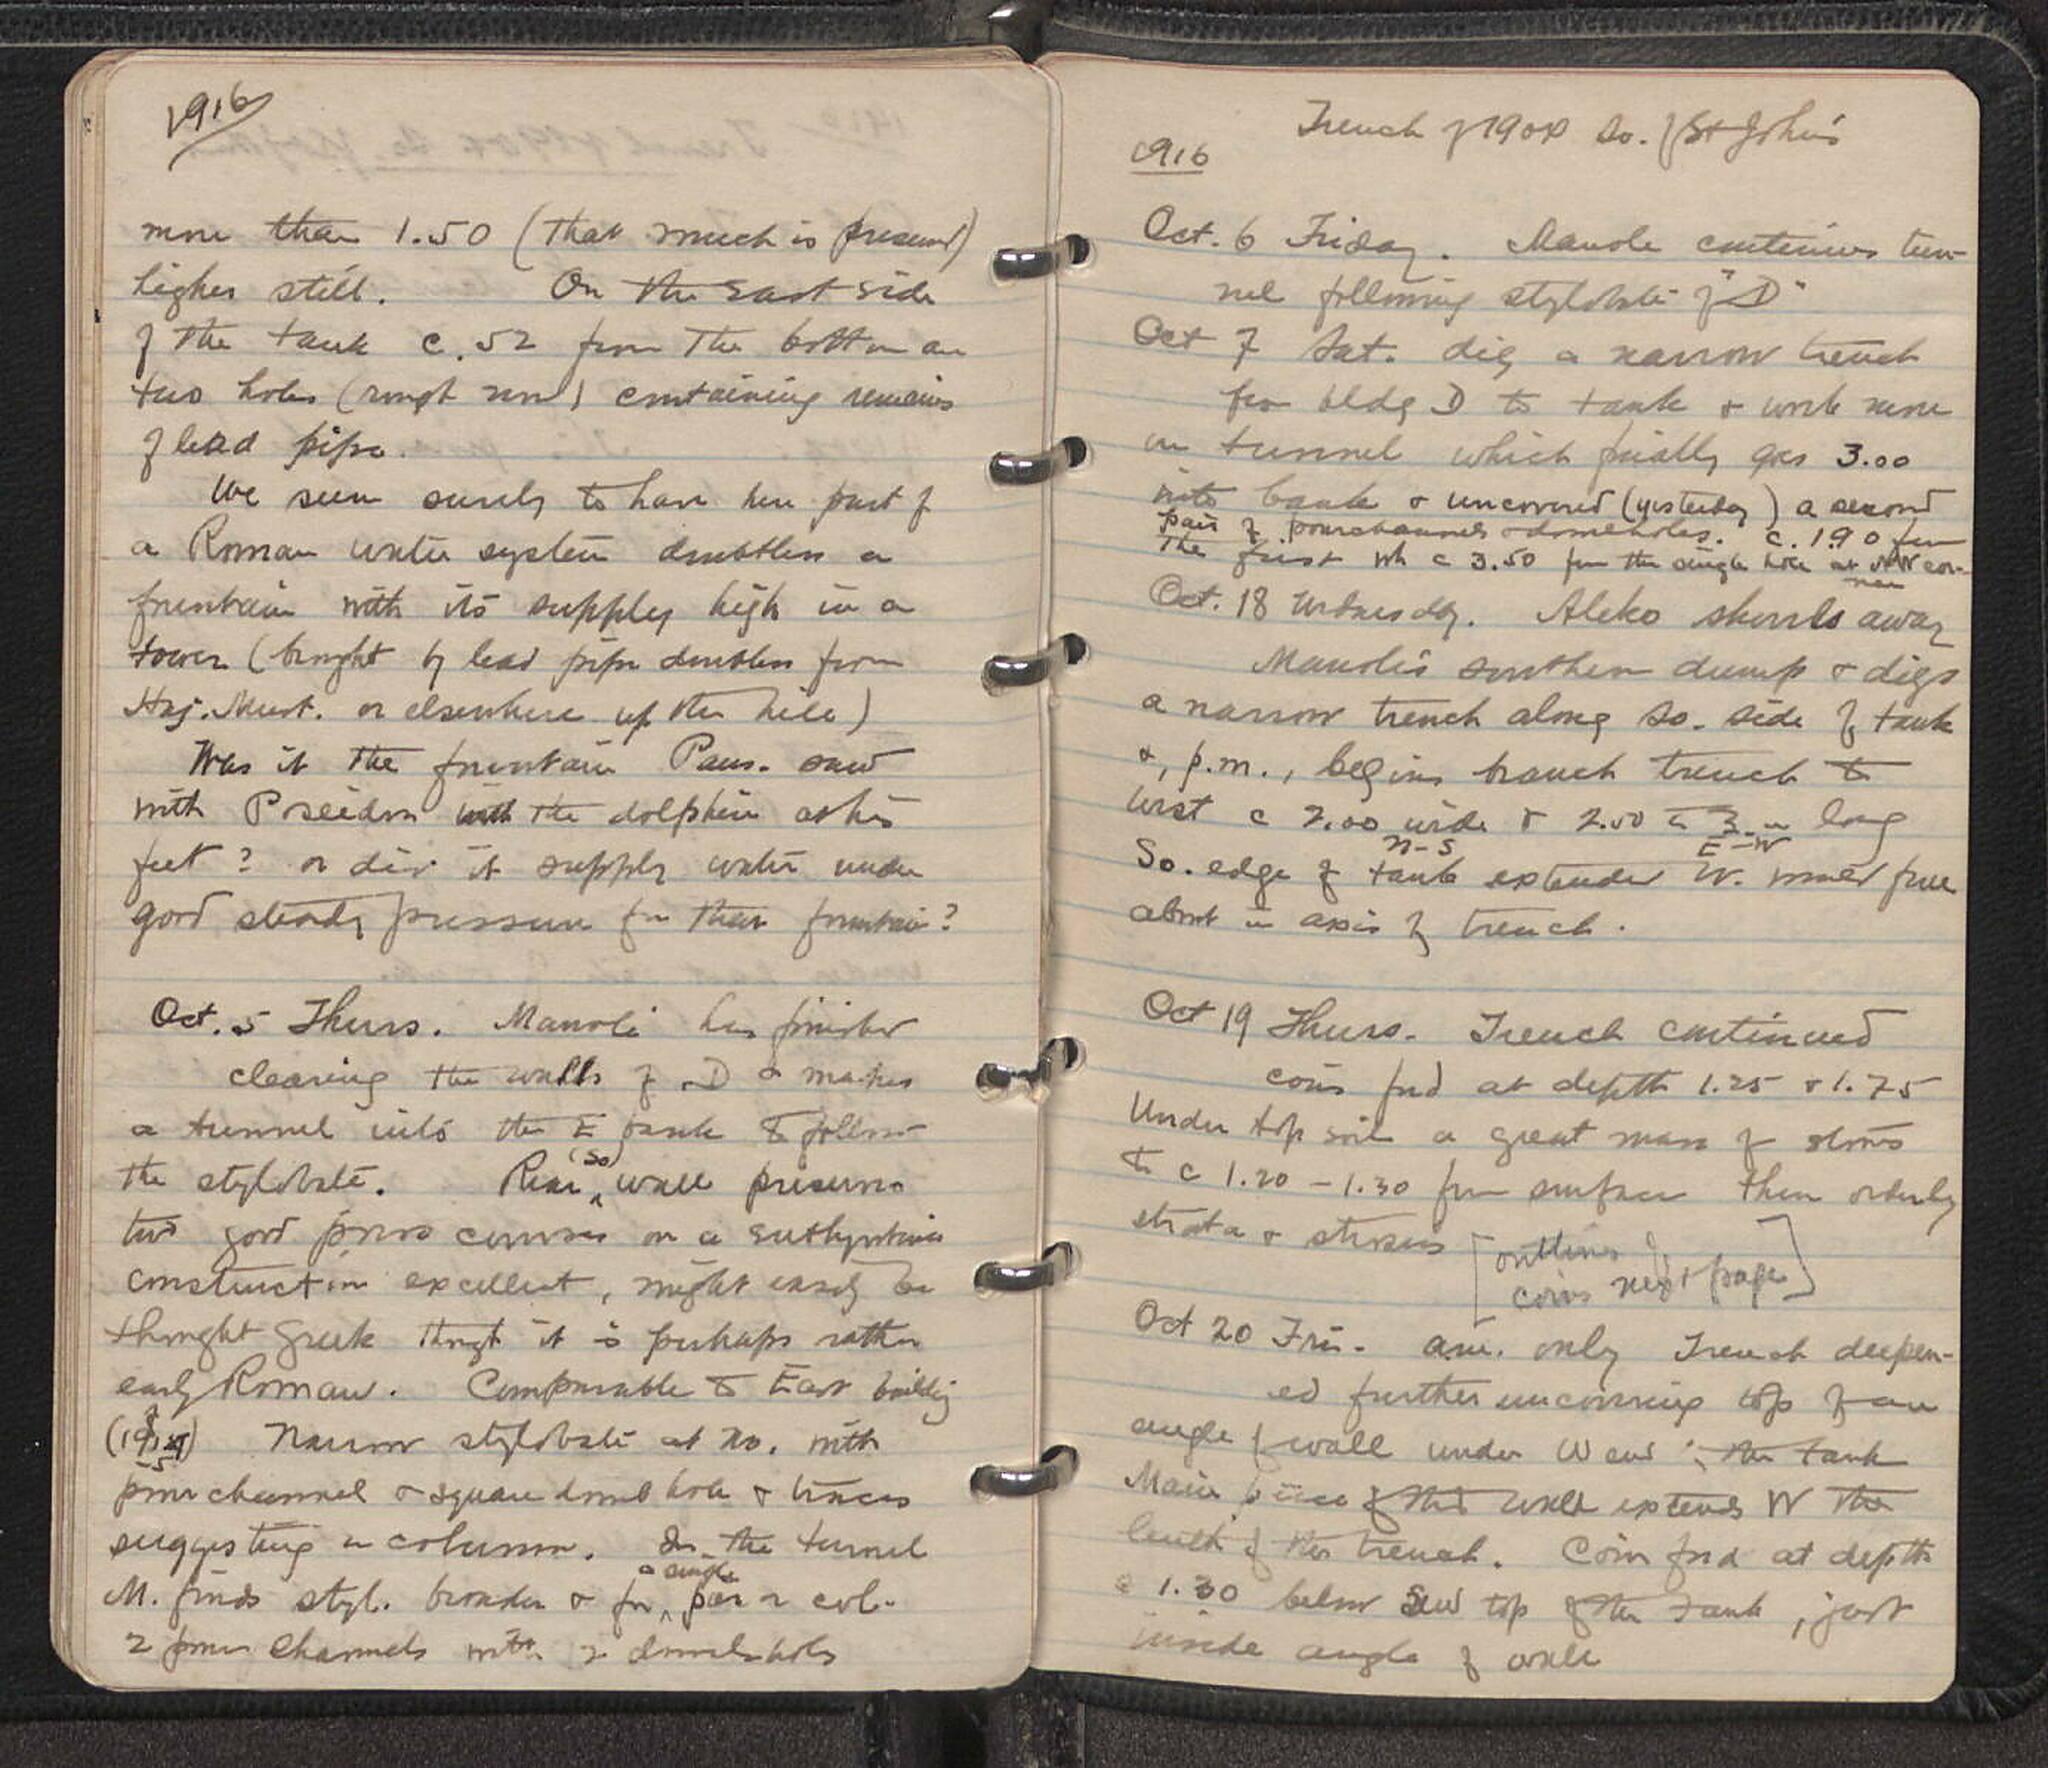 1916
more than 1.50 (that much is preserved)
higher still. On the East side
of the tank c. 52 from the bottom are
two holes (rough now) containing remains
of lead pipe.
We seem surely to have here part of
a Roman water system doubtless a
fountain with its supply high in a
tower (brought by lead pipe doubtless from
Haj. Must. or elsewhere up the hill)
Was it the fountain Paus. saw
with Poseidon with the dolphin at his
feet? or did it supply water under
good steady pressure for their fountain?
Oct. 5 Thurs. Manoli has finished
clearing the walls of D & makes
a tunnel into the E bank to follow
the stylobate. Rear (So) wall preserves
two good poros courses on a euthynteria
construction excellent, might easily be
thought Greek though it is perhaps rather
early Roman. Comparable to East building
Narrow stylobate at no. with
pour channel & square dowel hole & traces
suggesting a column. In the tunnel
M. finds styl. broader & for a single pier or col.
2 pour channels with 2 dowel holes
Trench of 1908 So. of St John's
1916
Oct. 6 Friday. Manole continues tun-
nel following stylobate of "D"
Oct 7 Sat. dig a narrow trench
from bldg D to tank & work more
in tunnel which finally goes 3.00
into bank & uncovered (yesterday) a second
pair of pourchannels & dowelholes. c. 1.90 from
the first wh c 3.50 from the single hole at NW cor-
ner
Oct. 18 Wednesday. Aleko shovels away
Manoli's southern dump & digs
a narrow trench along so. side of tank
&, p.m., begins branch trench to
West c 2.00 wide & 2.50 to 3 m long
N-S E-W
So. edge of tank extended W. would fall
about in axis of trench.
Oct 19 Thurs. Trench continued
coins fnd at depth 1.25 & 1.75
Under top soil a great mass of stones
to c 1.20 - 1.30 from surface then orderly
strata & stroses [outlines of
coins next page]
Oct 20 Fri. a.m. only Trench deepen-
ed further uncovering top of an
angle of wall under W end of the tank
Main piece of this wall extends W the
length of the trench. Coin fnd at depth
c 1.30 below SW top of the tank, just
inside angle of wall